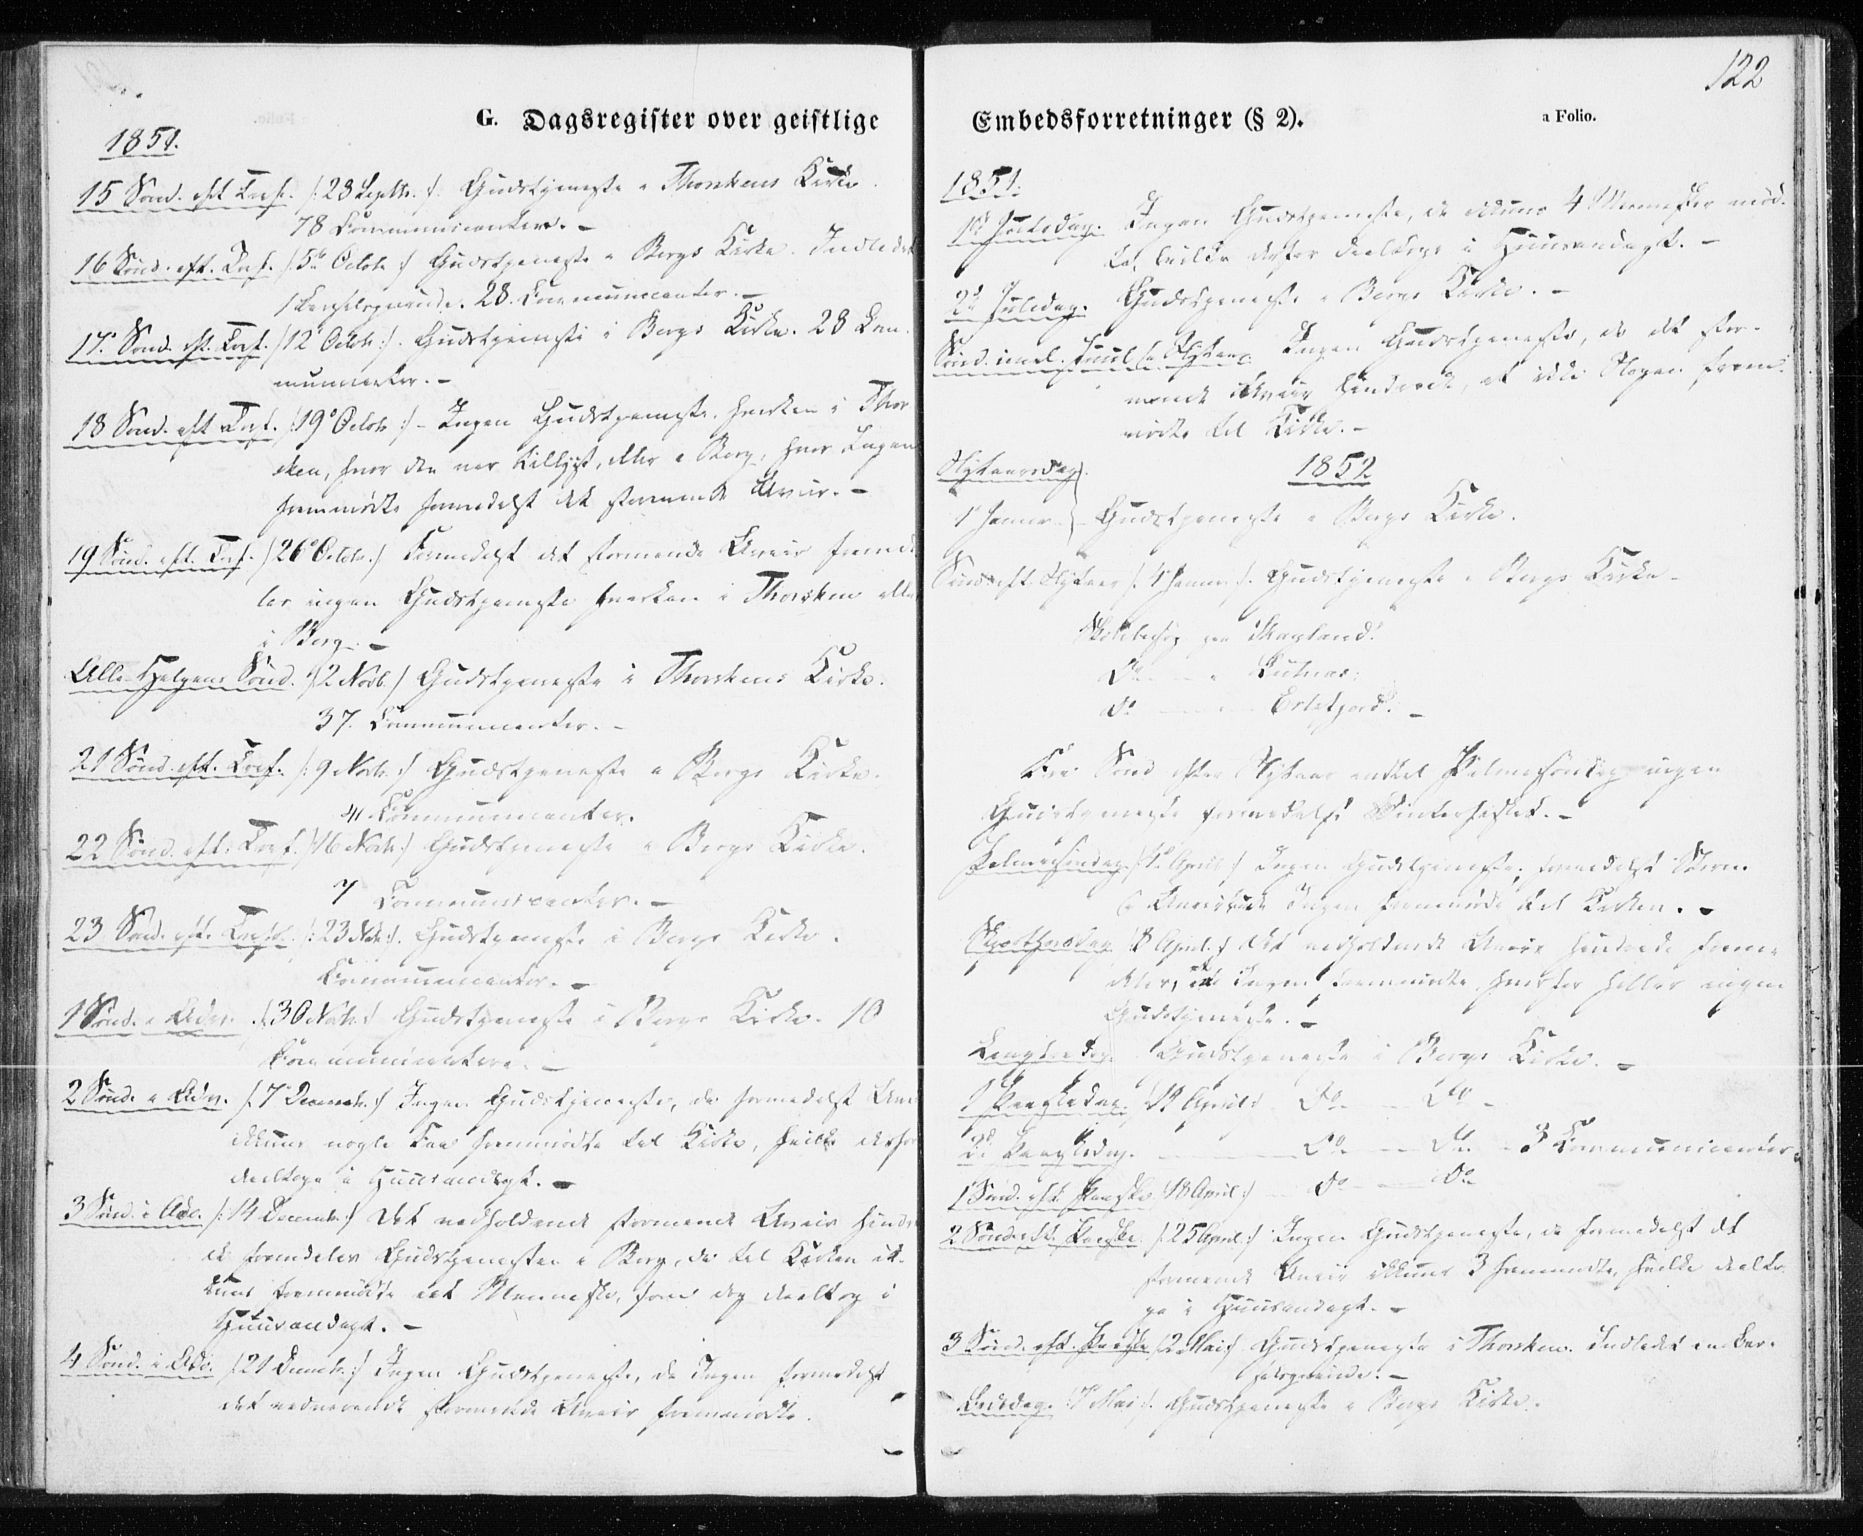 G. Dagsregister over geistlige
1851.
15 Sønd. eft. Tref. /: 28 Septbr. :/ Gudstjeneste i Thorskens Kirke.
78 Communicantere. –
16 Sønd. eft. Tref. /: 5te Octbr :/ Gudstjeneste i Bergs Kirke. Indledet
1 Barselqvinde. 28. Communicanter. –
17. Sønd. eft. Tref. /: 12 Octbr :/. Gudstjeneste i Bergs Kirke. 28 Com-
municanter. –
18 Sønd. eft Tref. /: 19 Octbr :/ – Ingen Gudstjeneste hverken i Thor
sken, hvor den var tillyst, eller i Berg, hvor Ingen
fremmødte formedelst det stormende Uveir. –
19 Sønd. eft. Tref. /: 26 Octbr. :/ Formedelst det stormende Uveir
ingen Gudstjeneste hverken i Thorsken elle
i Berg. –
Alle Helgens Sønd. /: 2 Novb. :/ Gudstjeneste i Thorskens Kirke.
37. Communicanter. –
21 Sønd. eft. Tref. /: 9 Novbr. :/ Gudstjeneste i Bergs Kirke.
Communicanter.
22 Sønd. eft. Tref. /: 16 Novbr :/ Gudstjeneste i Bergs Kirke.
7 Communicanter. –
23 Sønd. eft. Tref. /: 23 Nvbr :/. Gudstjeneste i Bergs Kirke.
Communicanter. –
1 Sønd. i Adv. /: 30 Novbr :/ Gudstjeneste i Bergs Kirke. 10
Communicantere. –
2 Sønd. i Adv. /: 7 Decembr. :/ Ingen Gudstjeneste, da formedelst
ikkuns nogle Faa fremmødte til Kirke, hvilke derfor
deeltoge i Huusandagt. –
3 Sønd. i Adv. /: 14 Decembr. :/ Det vedholdende stormende Uveir hindre
de fremdeles Gudstjenesten i Berg, da til Kirken ik-
kuns fremmødte eet Menneske, som dog deeltog i
Huusandagt. –
4 Sønd. i Adv. /: 21 Decembr. :/ Ingen Gudstjeneste, da Ingen formedelst
det vedvarende stormende Uveir fremmødte.
122
Embedsforretninger (§ 2).
a Folio.
1851.
1ste Juledag. Ingen Gudstjeneste, da ikkuns 4 Mennesker mød-
te, hvilke derfor deeltoge i Huusandagt. –
2d Juledag. Gudstjeneste i Bergs Kirke. –
Sønd. imel. Juul & Nytaar. Ingen Gudstjeneste, da det stor-
mende Uveir hindrede, at ikke Nogen frem-
mødte til Kirke. –
1852
Nytaarsdag
1 Januar Gudstjeneste i Bergs Kirke.
Sønd. eft. Nytaar /: 4 Januar :/. Gudstjeneste i Bergs Kirke –
Skolebesøg paa
Do
do
Fra Sønd efter Nytaar indtil Palmesøndag ingen
Gudstjeneste formedelst Vinterfisket. –
Palmesøndag. /: 4 April :/ Ingen Gudstjeneste, formedelst Storm
& Uveir Ingen fremmødte til Kirken. –
Skjærthorsdag /: 8 April. :/ Det vedholdende Uveir hindrede frem-
deles, at Ingen fremmødte, hvorfor heller ingen
Gudstjeneste. –
Langfredag. Gudstjeneste i Bergs Kirke. –
1 Paaskedag. /: 11 April :/ Do – Do –
2d Paaskedag. – Do – Do – 3 Communicanter.
1 Sønd. eft. Paaske /: 18 April :/ – do – do
2 Sønd. eft. Paaske. /: 25 April :/ Ingen Gudstjeneste, da formedelst det
stormende Uveir ikkuns 3 fremmødte, hvilke deelto-
ge i Huusandagt. –
3 Sønd. eft. Paaske /: 2 Mai :/ Gudstjeneste i Thorsken. Indledet en Bar-
selqvinde. –
Bededag. /: 7 Mai :/. Gudstjeneste i Bergs Kirke.